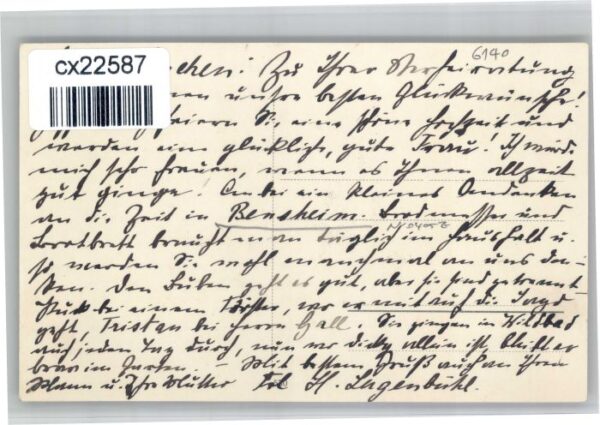 cx22587
6140
chen! Zu Ihrer Verheiratung
unsre besten Glückwünsche!
feiern Sie eine schöne Hochzeit und
werden eine glückliche, gute Frau! Ich würde
mich sehr freuen, wenn es Ihnen allzeit
gut ginge. Anbei ein kleines Andenken
an die Zeit in Bensheim. Brodmesser und
Brotbrett braucht man täglich im Haushalt u.
so werden Sie wohl manchmal an uns den-
ken. Den Buben geht es gut, aber sie sind getrennt
Puck bei einem Förster, wo er mit auf die Jagd
geht, Tristan bei Herrn Gall. Sie gingen in Wildbad
auch jeden Tag durch, nun wo dicky allein ist, bleibt er
brav im Garten – Mit bestem Gruß auch an Ihren
Mann u. Ihre Mutter Frl. H. Lagenbühl.